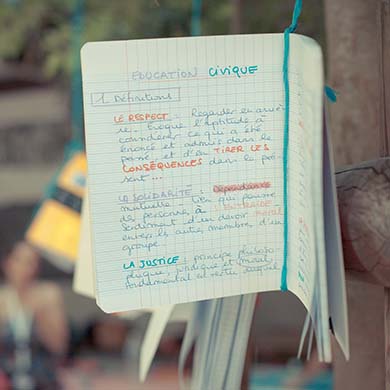 EDUCATION CIVIQUE
1 Définitions
LE RESPECT : Regarder en arriè
re. Evoque l'aptitude à
considérer ce qui a été
énoncé et admis dans le
passé, et d'en TIRER LES
CONSÉQUENCES dans le pré-
sent ...
LA SOLIDARITÉ : Dépendance
mutuelle - lien qui pousse
des personnes à L'ENTRAIDE
Sentiment d'un devoir moral
envers les autres membres d'un
groupe.
LA JUSTICE : principe philoso
phique, juridique et moral,
fondamental et vertu auquel